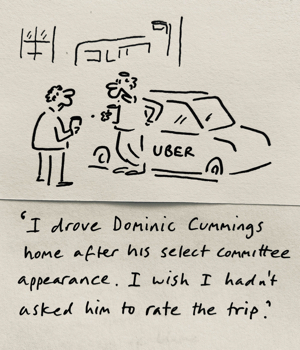 UBER
'I drove Dominic Cummings
home after his select committee
appearance. I wish I hadn't
asked him to rate the trip.'